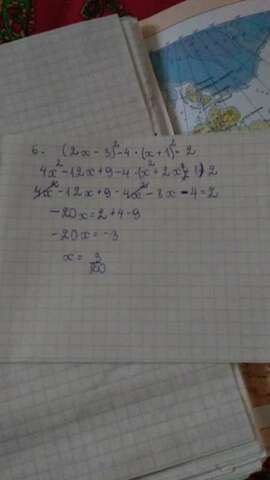 6. (2x - 3)² - 4 · (x + 1)² = 2
4x² - 12x + 9 - 4 · (x² + 2x + 1) = 2
4x² - 12x + 9 - 4x² - 8x - 4 = 2
- 20x = 2 + 4 - 9
- 20x = -3
x = 3/20